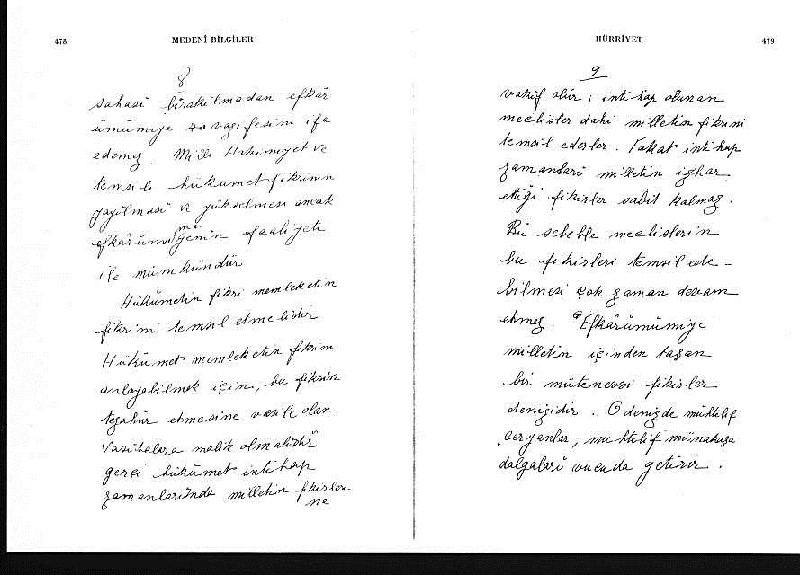 478
MEDENİ BİLGİLER
8
sahası bırakılmadan efkâr
ümumiye vazifesini ifa
edemez. Milli Hakimiyet ve
temsilî hükümet fikrinin
yayılması ve yükselmesi ancak
efkârıumumiyenin faaliyeti
ile mümkündür
Hükümetin fikri memleketin
fikrini temsil etmelidir
Hükümet memleketin fikrini
anlayabilmek için, bu fikrin
tezahür etmesine vesile olan
vasıtalara malik olmalıdır
gerçi hükümet intihap
zamanlarında milletin fikirleri-
ne
HÜRRİYET
479
9
vakıf olur; intihap olunan
meclisler dahi milletin fikrini
temsil ederler. Fakat intihap
zamanları milletin izhar
ettiği fikirler sabit kalmaz.
Bu sebeble meclislerin
bu fikirleri temsil ede-
bilmesi çok zaman devam
etmez. Efkârıumumiye
milletin içinden taşan
bir mütenevvi fikirler
denizidir. O denizde muhtelif
cereyanlar, muhtelif münakaşa
dalgaları vücuda getirir.